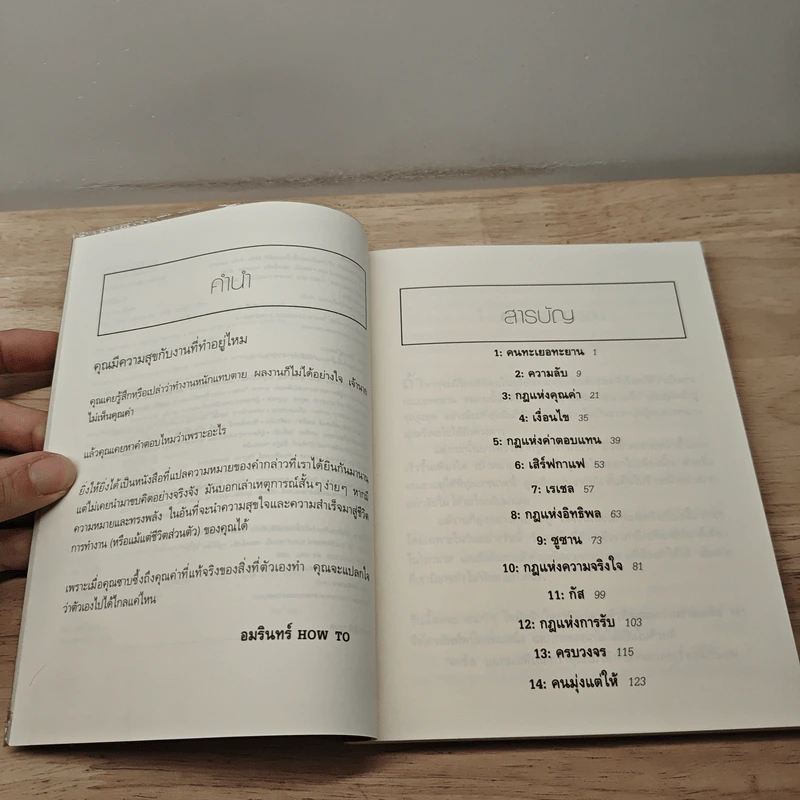 คำนำ
คุณมีความสุขกับงานที่ทำอยู่ไหม
คุณเคยรู้สึกหรือเปล่าว่าทำงานหนักแทบตาย ผลงานก็ไม่ได้อย่างใจ เจ้านาย
ไม่เห็นคุณค่า
แล้วคุณเคยหาคำตอบไหมว่าเพราะอะไร
ยิ่งให้ยิ่งได้ เป็นหนังสือที่แปลความหมายของคำกล่าวที่เราได้ยินกันมานาน
แต่ไม่เคยนำมาขบคิดอย่างจริงจัง มันบอกเล่าเหตุการณ์สั้นๆ ง่ายๆ หากมี
ความหมายและทรงพลัง ในอันที่จะนำความสุขใจและความสำเร็จมาสู่ชีวิต
การทำงาน (หรือแม้แต่ชีวิตส่วนตัว) ของคุณได้
เพราะเมื่อคุณซาบซึ้งถึงคุณค่าที่แท้จริงของสิ่งที่ตัวเองทำ คุณจะแปลกใจ
ว่าตัวเองไปได้ไกลแค่ไหน
อมรินทร์ HOW TO
สารบัญ
1: คนทะเยอทะยาน 1
2: ความลับ 9
3: กฎแห่งคุณค่า 21
4: เงื่อนไข 35
5: กฎแห่งค่าตอบแทน 39
6: เสิร์ฟกาแฟ 53
7: เรเชล 57
8: กฎแห่งอิทธิพล 63
9: ซูซาน 73
10: กฎแห่งความจริงใจ 81
11: กัส 99
12: กฎแห่งการรับ 103
13: ครบวงจร 115
14: คนมุ่งแต่ให้ 123